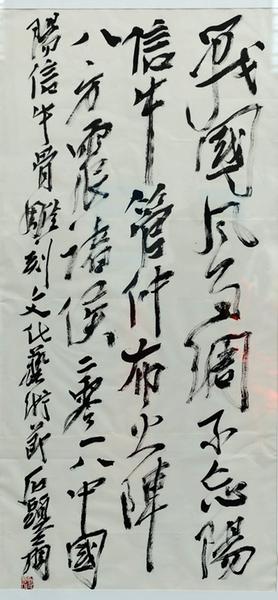 戰國風不忘陽
信牛管仲布火陣
八方震諸侯二零一八中國
陽信牛骨雕刻文化藝術節石